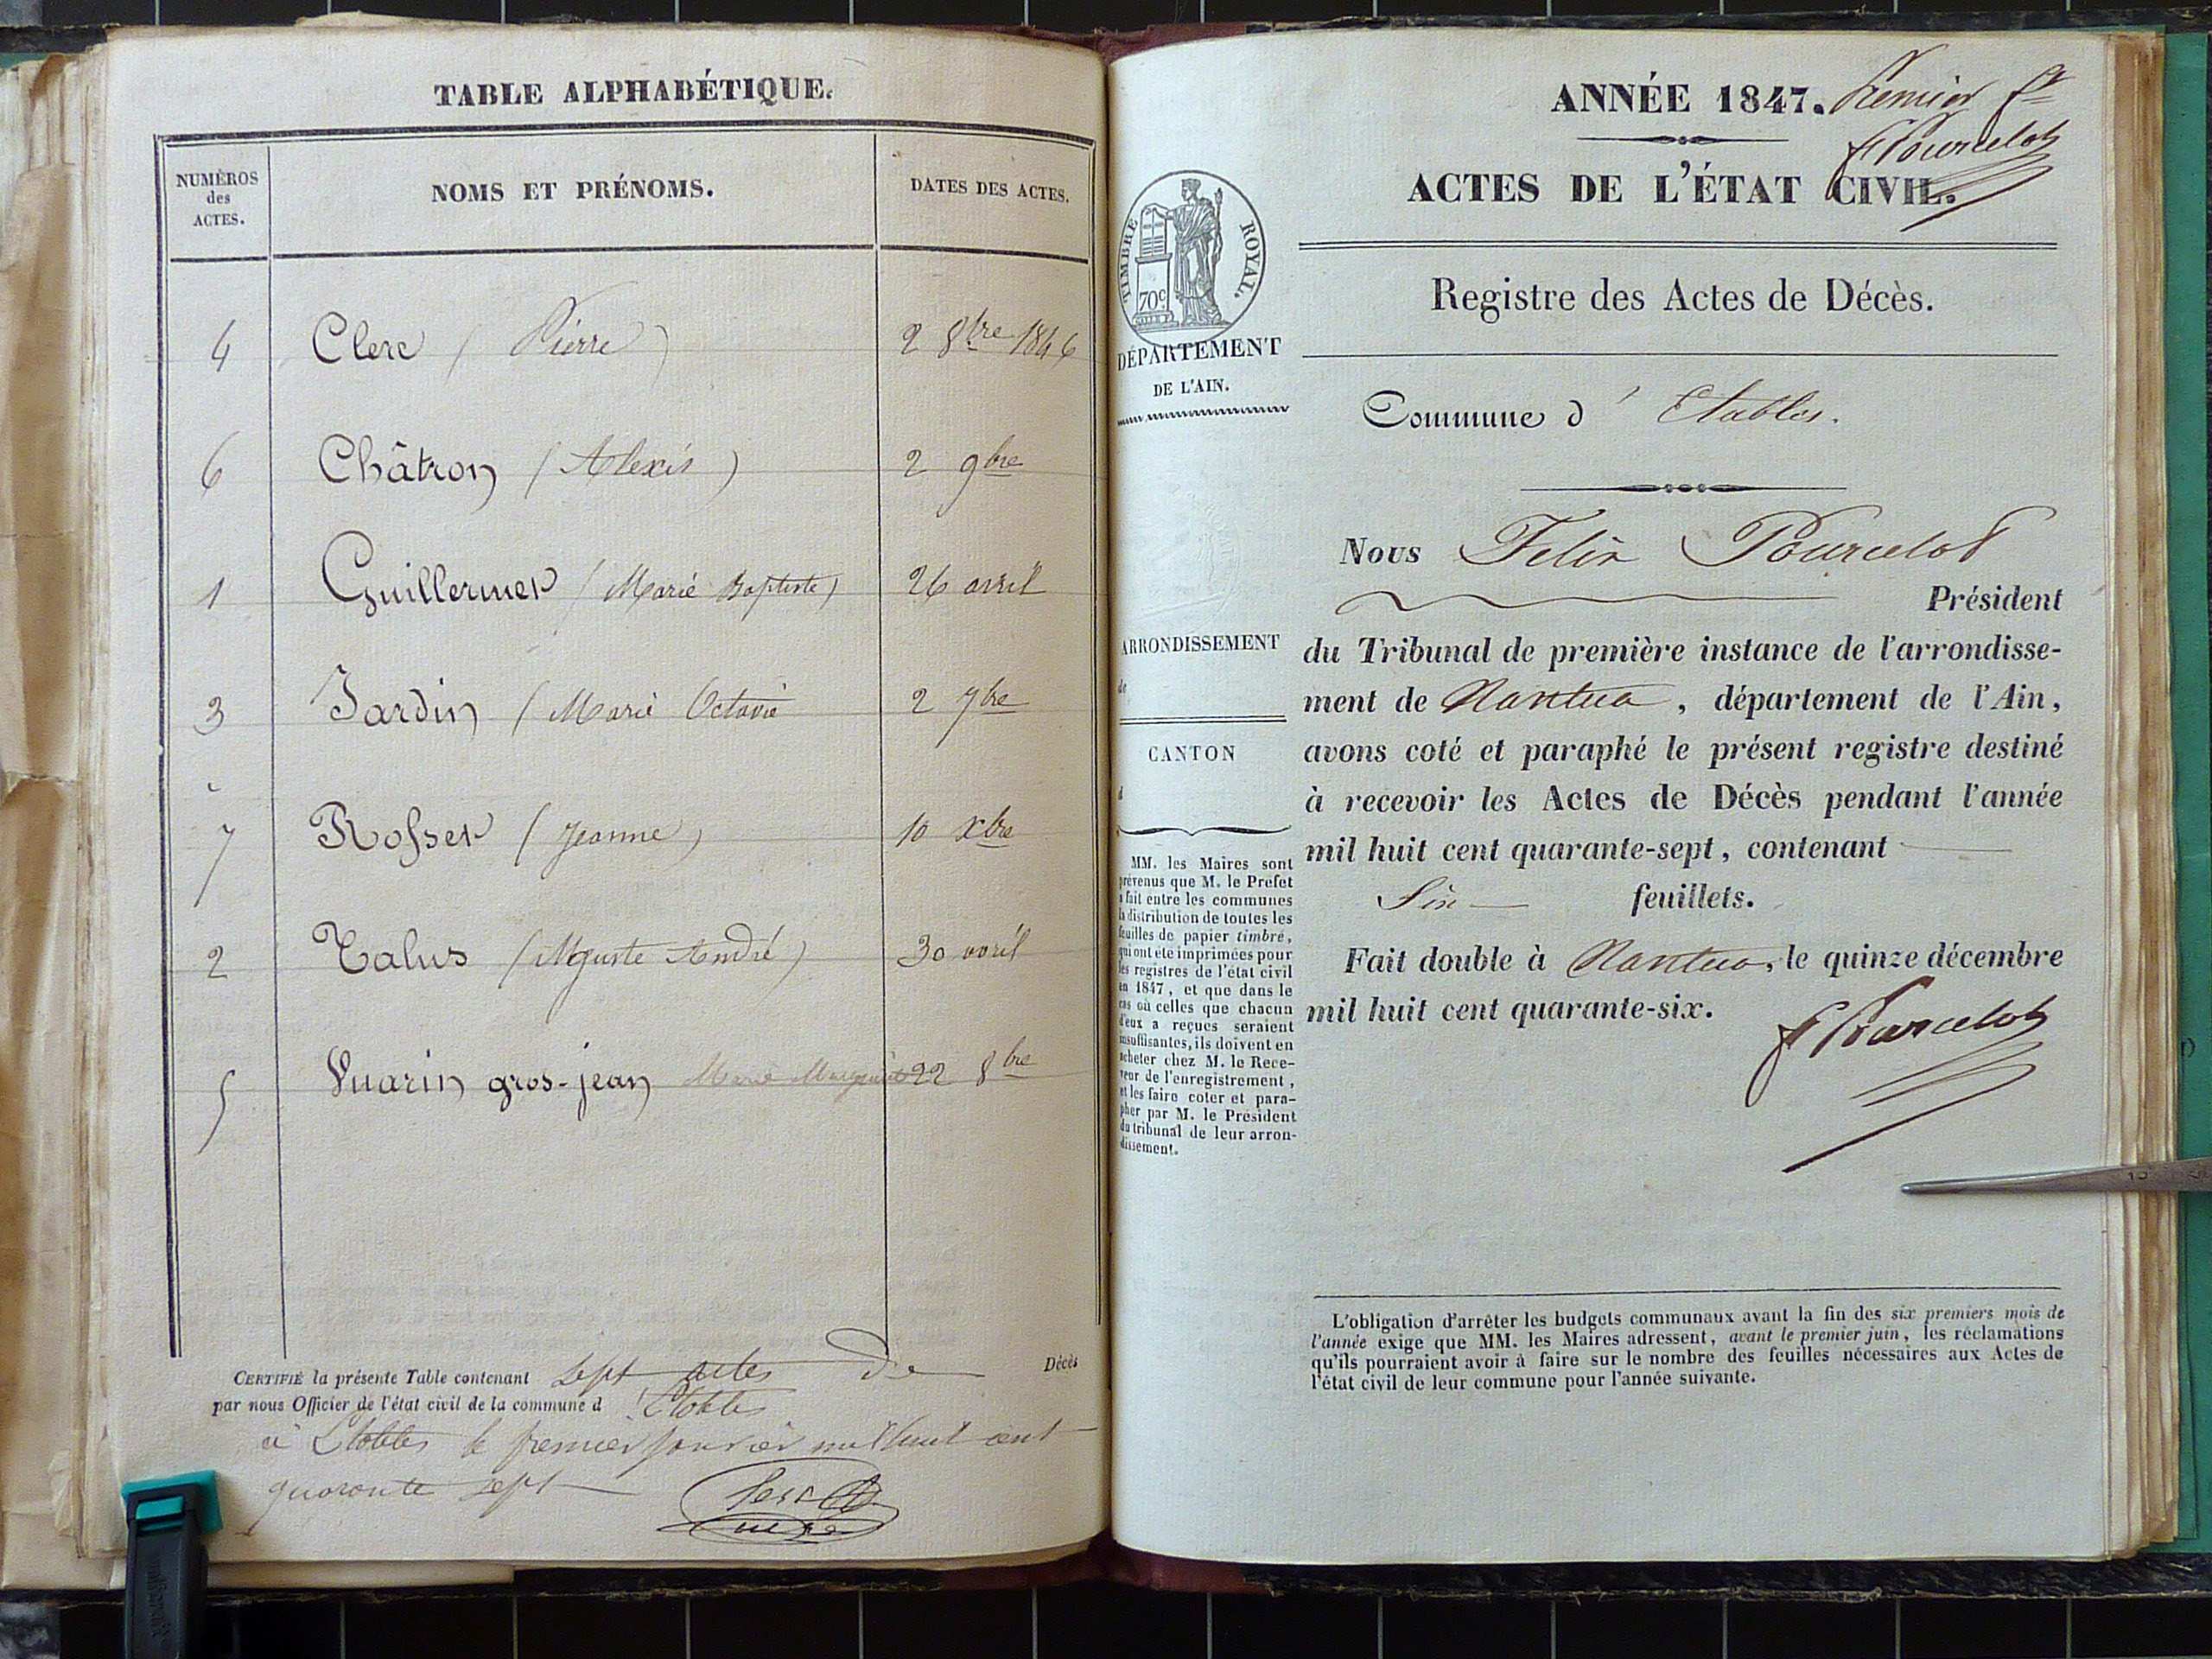 TABLE ALPHABÉTIQUE.
NUMÉROS des ACTES.
NOMS ET PRÉNOMS.
DATES DES ACTES.
4 Clerc (Pierre) 2 8bre 1846
6 Châtron (Alexis) 2 9bre
1 Guillermet (Marie Baptiste) 26 avril
3 Jardin (Marie Octavie 2 7bre
7 Rosset (Jeanne) 10 Xbre
2 Talus (Auguste André) 30 avril
5 Vuarin gros-jean Marie Marguerite 22 8bre
CERTIFIÉ la présente Table contenant sept actes de Décès
par nous Officier de l'état civil de la commune d'Etables
à Etables le premier janvier mil huit cent
quarante sept
ANNÉE 1847. Premier ft
F Pourcelot
ACTES DE L'ÉTAT CIVIL.
Registre des Actes de Décès.
TIMBRE ROYAL.
70c
DÉPARTEMENT
DE L'AIN.
ARRONDISSEMENT
de
CANTON
d
MM. les Maires sont
prévenus que M. le Préfet
a fait entre les communes
la distribution de toutes les
feuilles de papier timbré,
qui ont été imprimées pour
les registres de l'état civil
en 1847, et que dans le
cas où celles que chacun
d'eux a reçues seraient
insuffisantes, ils doivent en
acheter chez M. le Rece-
veur de l'enregistrement,
et les faire coter et para-
pher par M. le Président
du tribunal de leur arron-
dissement.
Commune d'Etables.
Nous Felix Pourcelot
Président
du Tribunal de première instance de l'arrondisse-
ment de Nantua, département de l'Ain,
avons coté et paraphé le présent registre destiné
à recevoir les Actes de Décès pendant l'année
mil huit cent quarante-sept, contenant
Six feuillets.
Fait double à Nantua, le quinze décembre
mil huit cent quarante-six.
F Pourcelot
L'obligation d'arrêter les budgets communaux avant la fin des six premiers mois de
l'année exige que MM. les Maires adressent, avant le premier juin, les réclamations
qu'ils pourraient avoir à faire sur le nombre des feuilles nécessaires aux Actes de
l'état civil de leur commune pour l'année suivante.